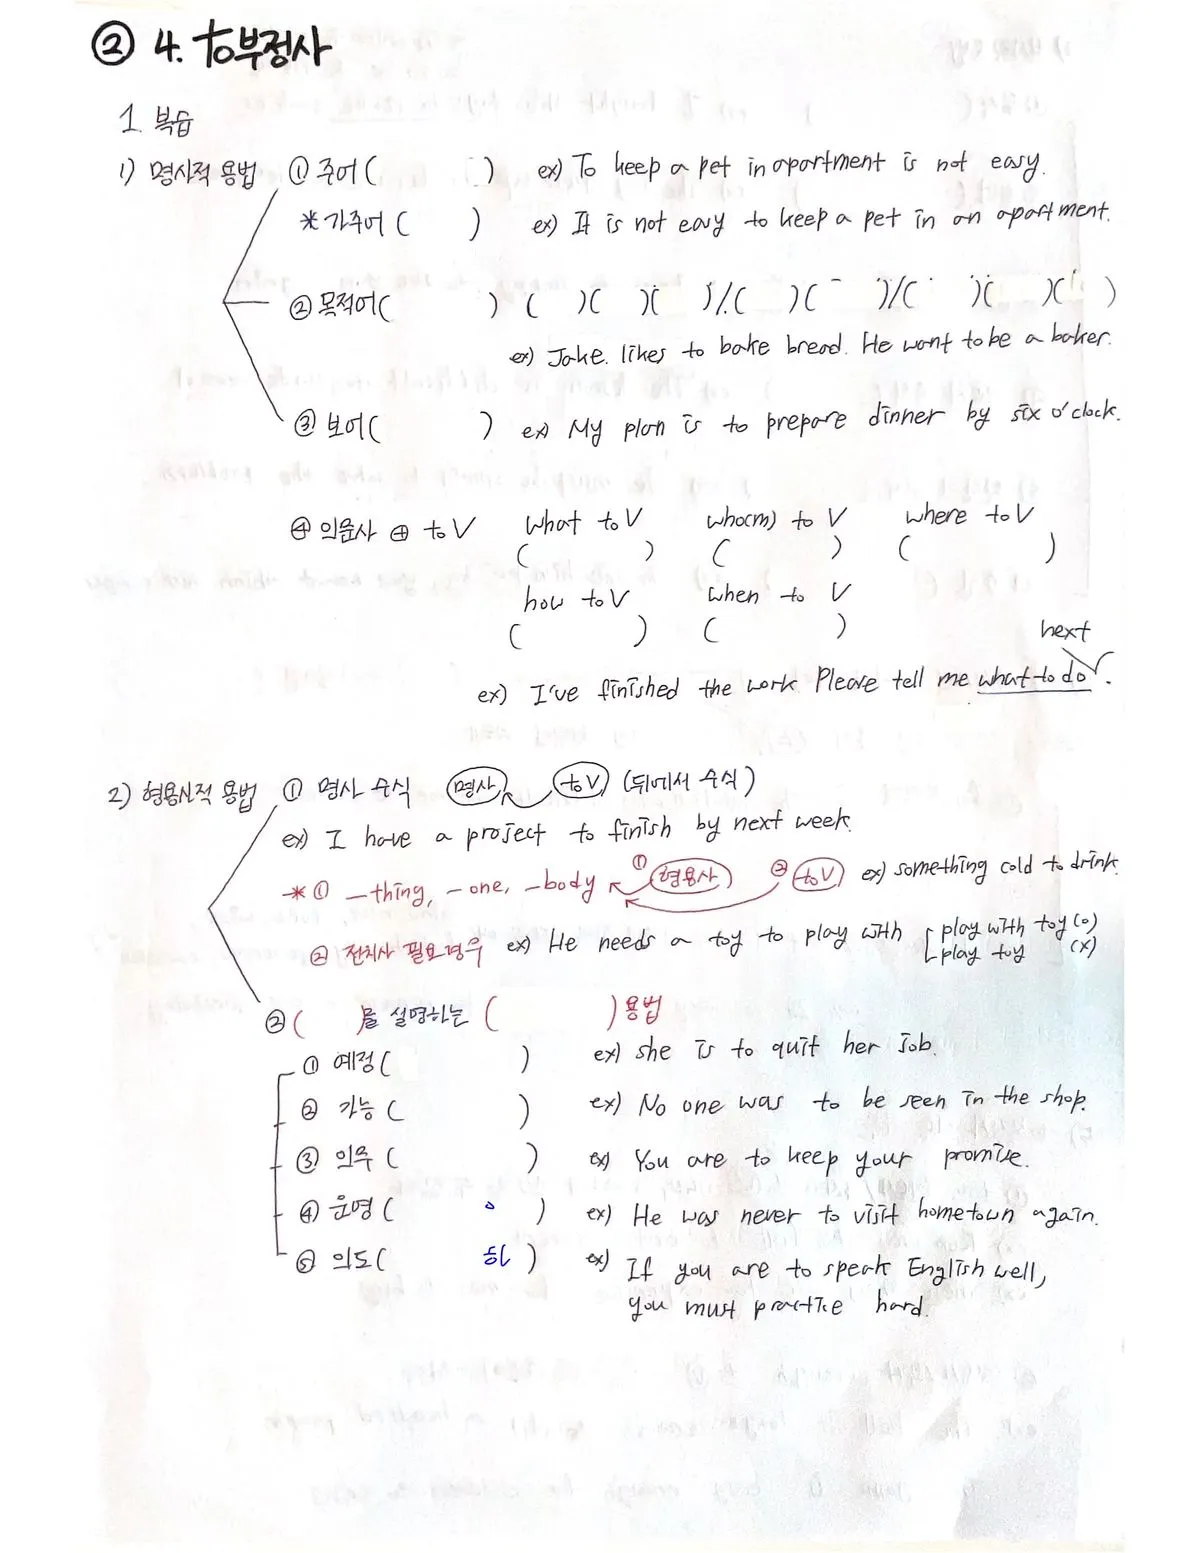 ② 4. to부정사
1. 복습
1) 명사적 용법 ① 주어 ( ) ex) To keep a pet in apartment is not easy.
* 가주어 ( ) ex) It is not easy to keep a pet in an apartment.
② 목적어 ( ) ( )( )( )/( )( )/( )( )( )
ex) Jake likes to bake bread. He want to be a baker.
③ 보어 ( ) ex) My plan is to prepare dinner by six o'clock.
④ 의문사 ⊕ to V what to V who(m) to V where to V
( ) ( ) ( )
how to V when to V
( ) ( )
next
ex) I've finished the work. Please tell me what to do.
2) 형용사적 용법 ① 명사 수식 명사 to V (뒤에서 수식)
ex) I have a project to finish by next week.
* ① -thing, -one, -body ① 형용사 ② to V ex) something cold to drink
② 전치사 필요경우 ex) He needs a toy to play with play with toy (o)
play toy (x)
② ( )를 설명하는 ( ) 용법
① 예정 ( ) ex) she is to quit her job.
② 가능 ( ) ex) No one was to be seen in the shop.
③ 의무 ( ) ex) You are to keep your promise.
④ 운명 ( ) ex) He was never to visit hometown again.
⑤ 의도 ( ) ex) If you are to speak English well,
you must practice hard.